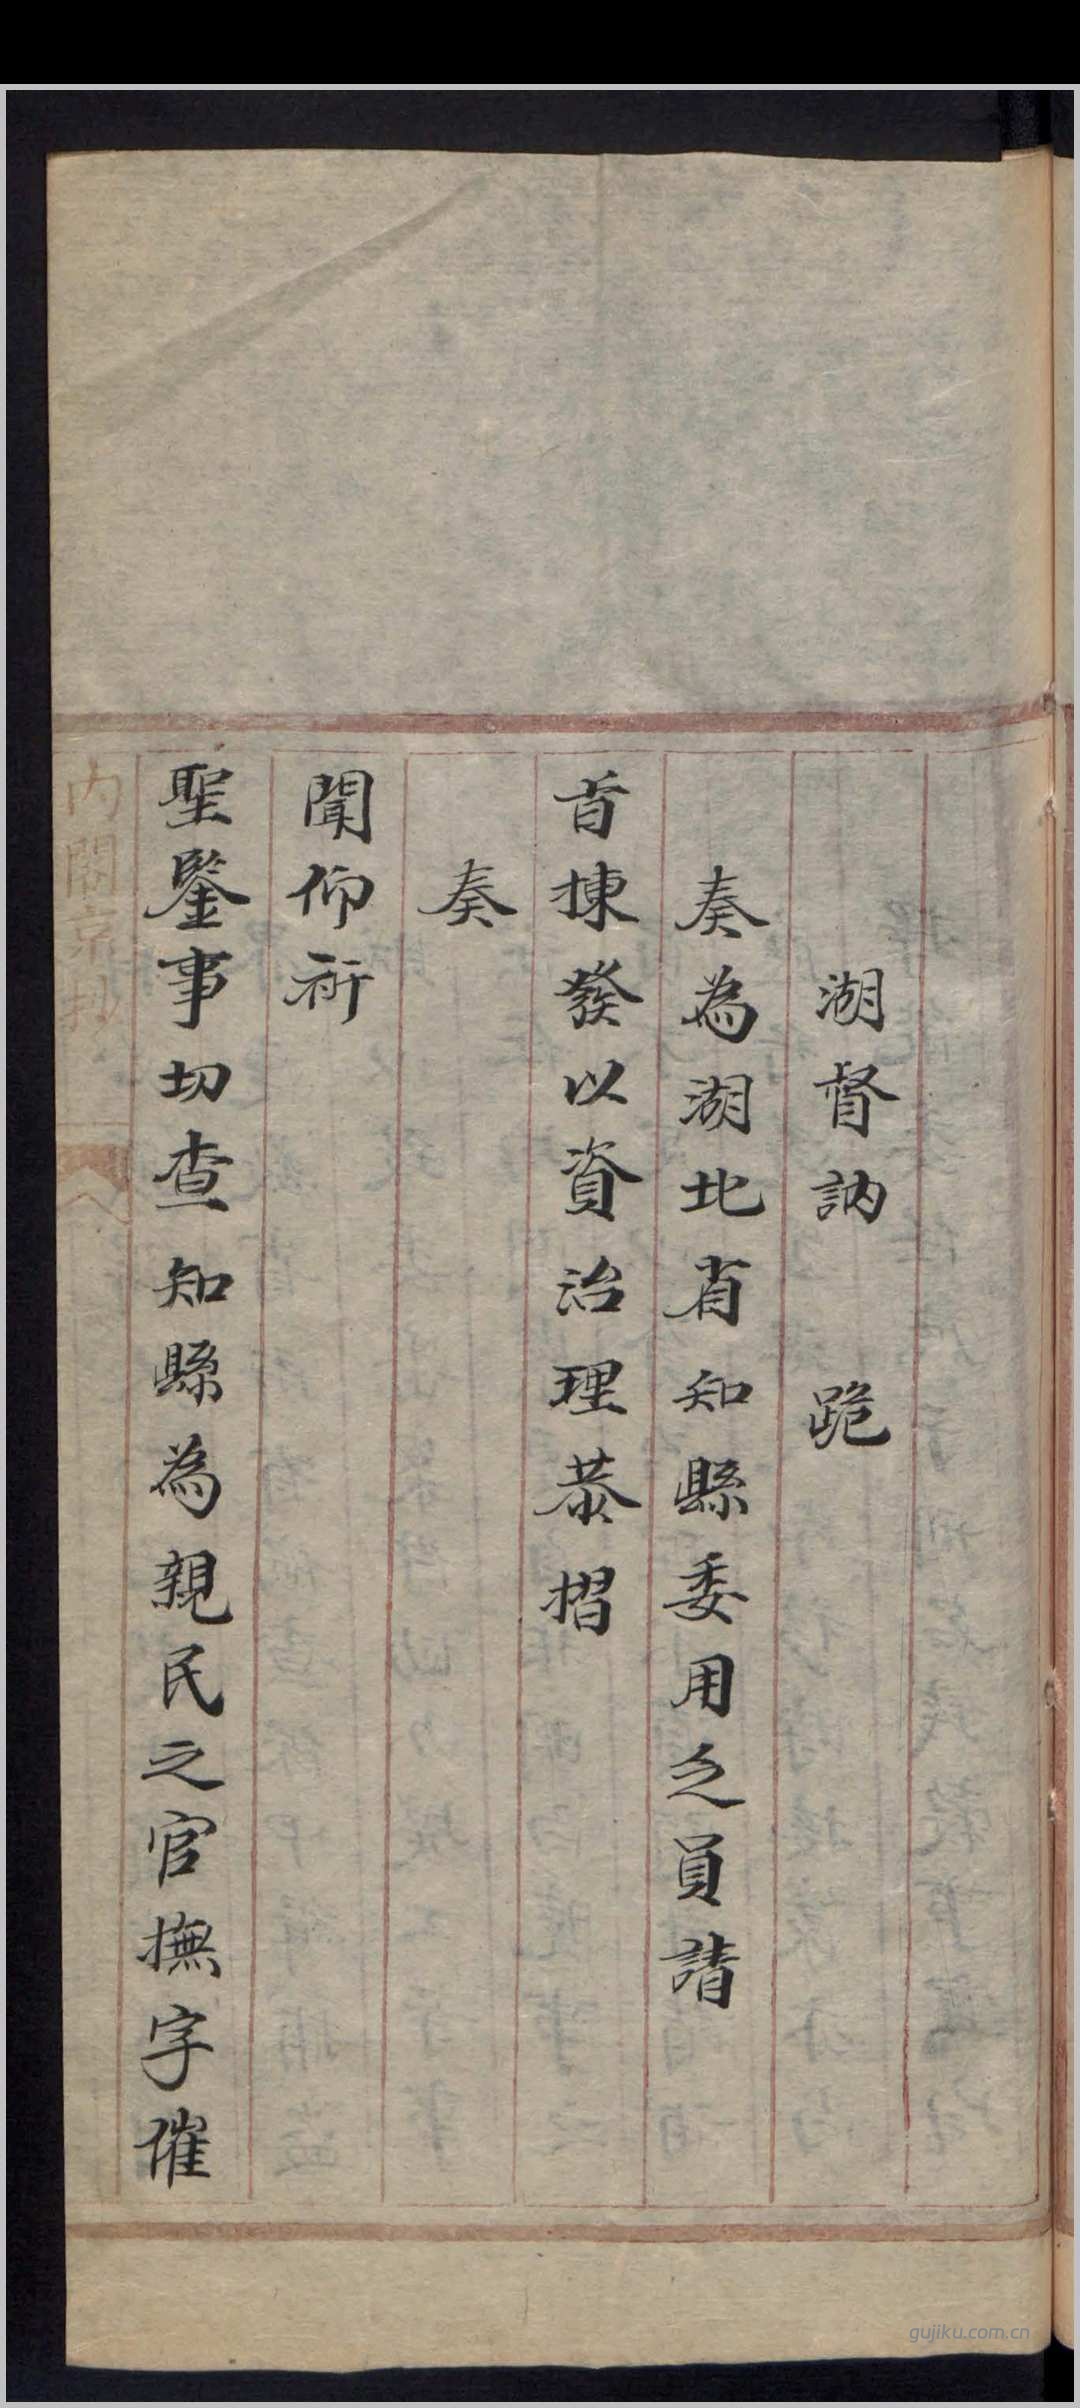 湖督訥　跪
奏為湖北省知縣委用乏員請
旨揀發以資治理恭摺
奏
聞仰祈
聖鑒事切查知縣為親民之官撫字催
內閣京抄
gujiku.com.cn